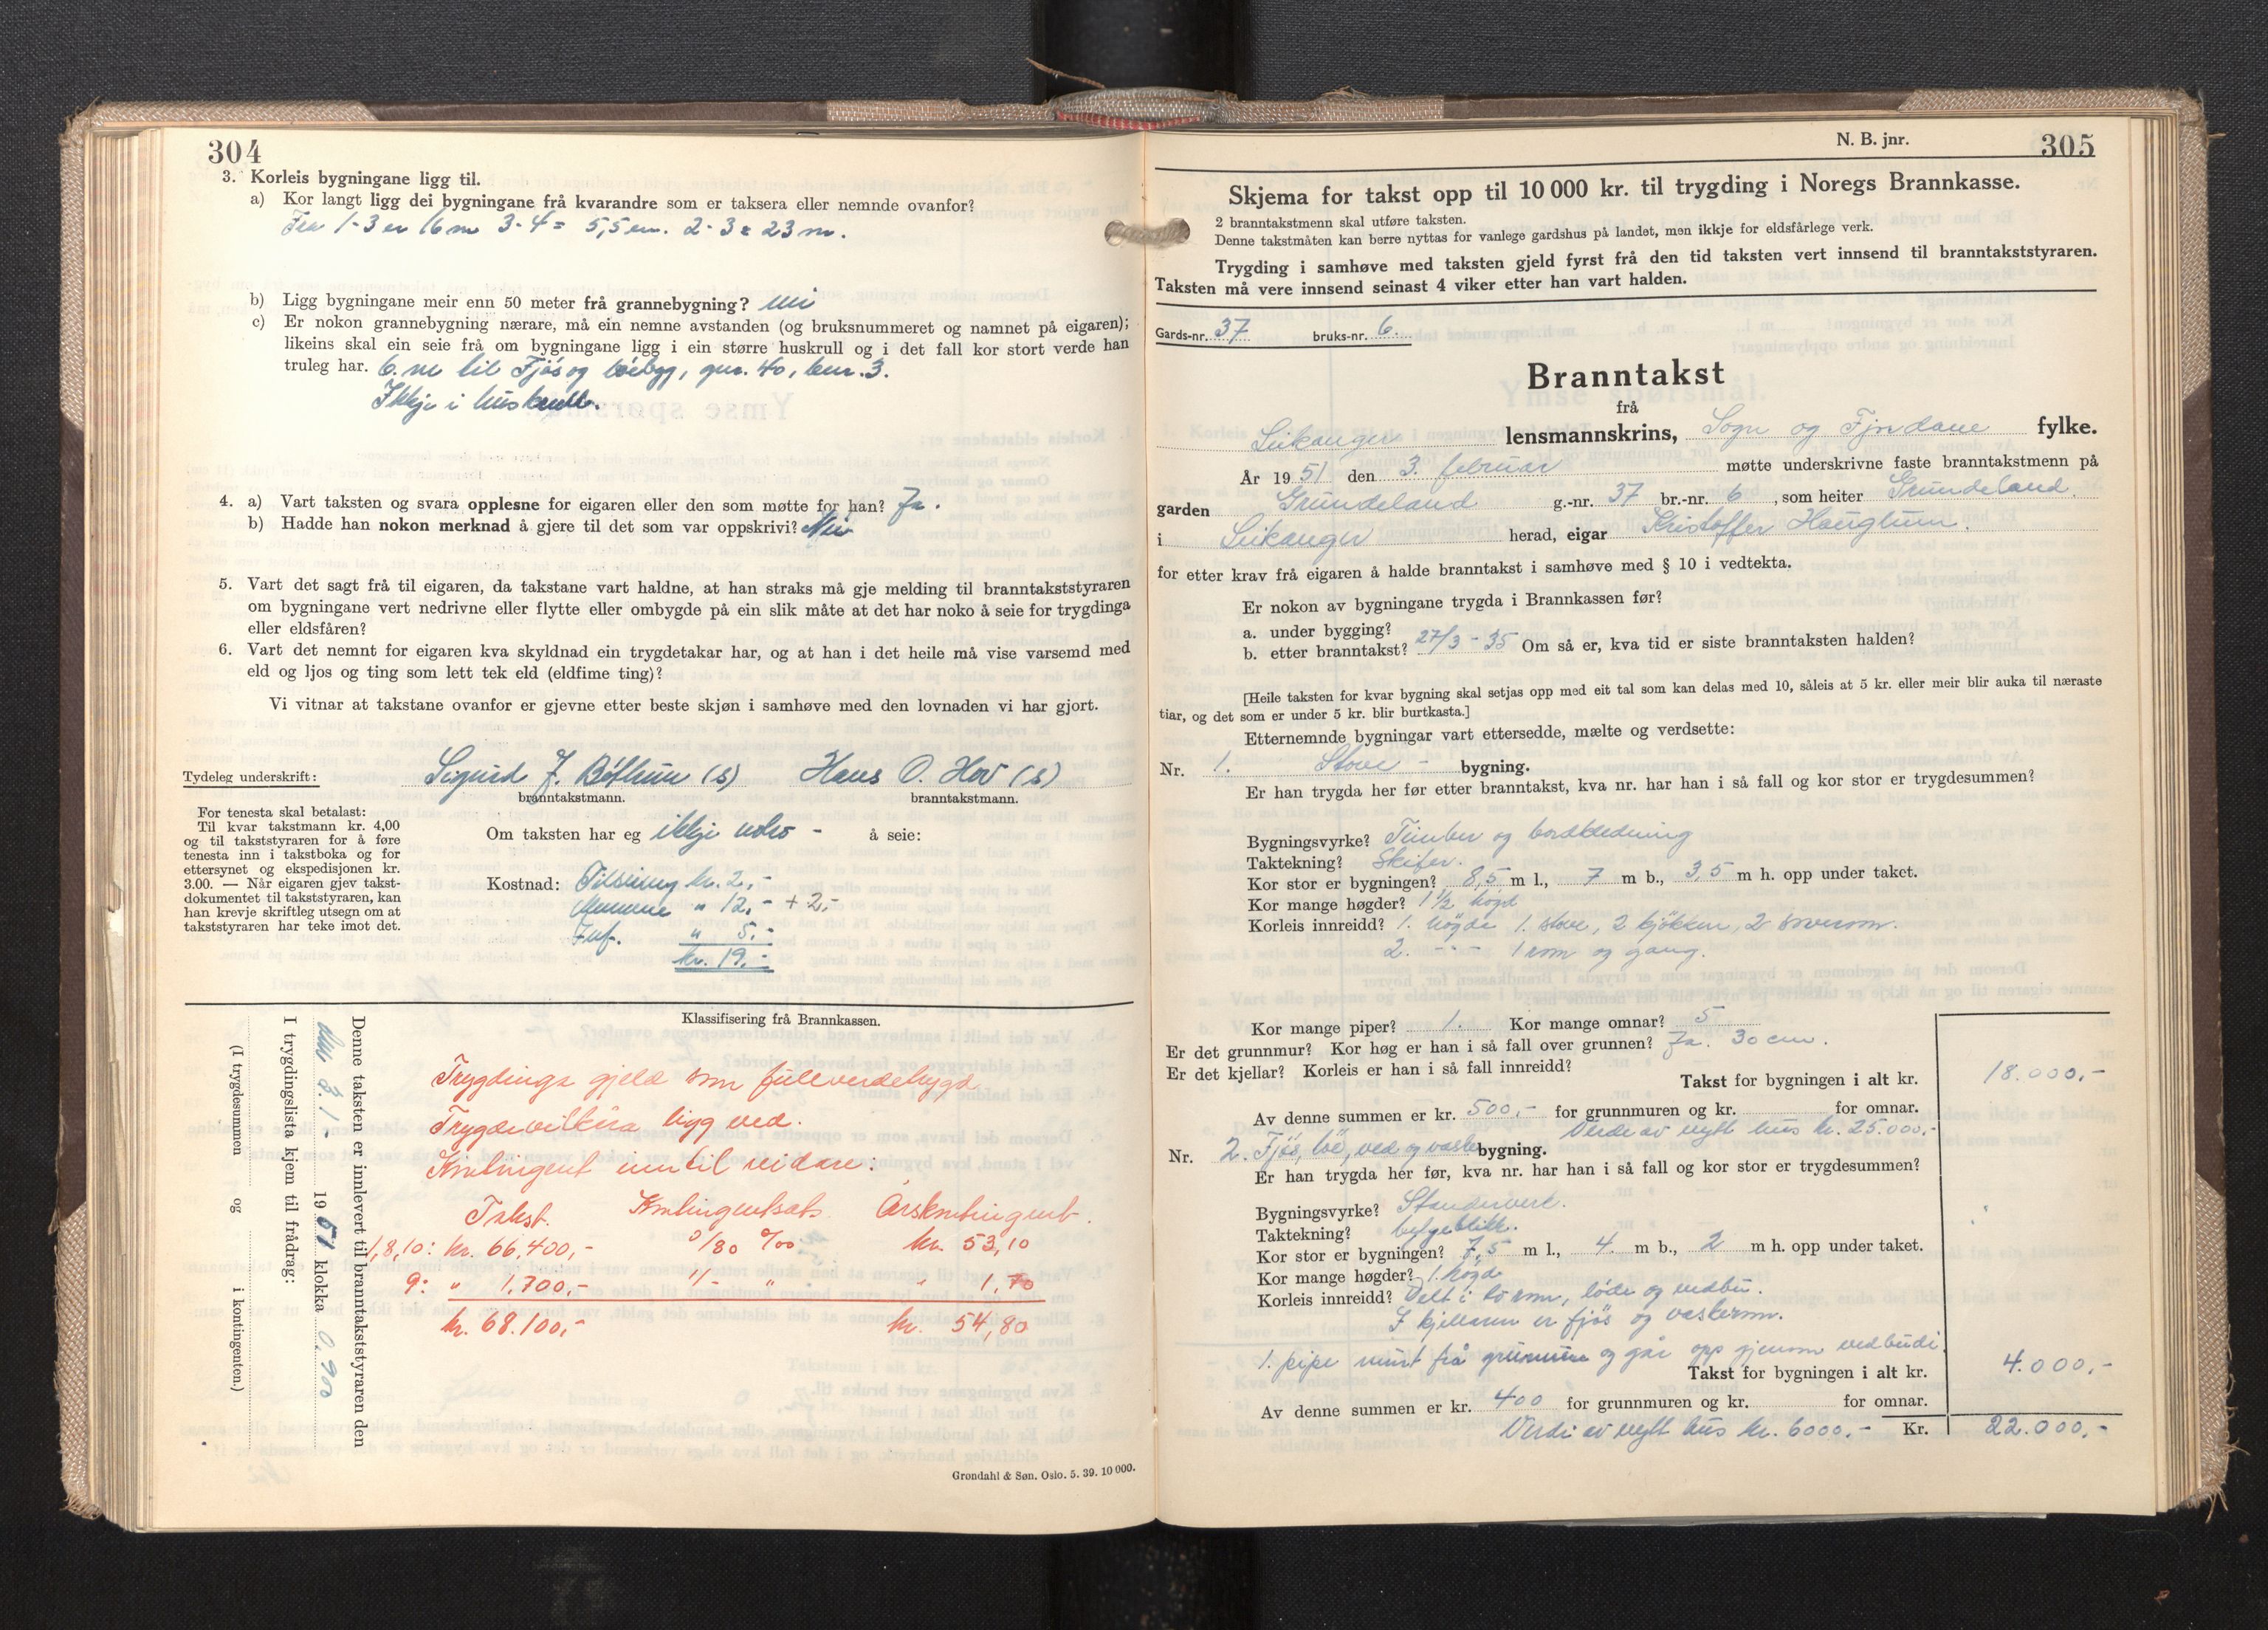 304
3. Korleis bygningane ligg til.
a) Kor langt ligg dei bygningane frå kvarandre som er taksera eller nemnde ovanfor?
Fra 1-3 er 16 m 3-4 = 5,5 m. 2-3 = 23 m.
b) Ligg bygningane meir enn 50 meter frå grannebygning? nei
c) Er nokon grannebygning nærare, må ein nemne avstanden (og bruksnummeret og namnet på eigaren);
likeins skal ein seie frå om bygningane ligg i ein større huskrull og i det fall kor stort verde han
truleg har. 6. m til Fjös og löebygg, gnr. 40, bnr. 3.
Ikkje i huskrull.
4. a) Vart taksten og svara opplesne for eigaren eller den som møtte for han? Ja.
b) Hadde han nokon merknad å gjere til det som var oppskrivi? Nei
5. Vart det sagt frå til eigaren, da takstane vart haldne, at han straks må gje melding til branntakststyraren
om bygningane vert nedrivne eller flytte eller ombygde på ein slik måte at det har noko å seie for trygdinga
eller eldsfåren?
6. Vart det nemnt for eigaren kva skyldnad ein trygdetakar har, og at han i det heile må vise varsemd med
eld og ljos og ting som lett tek eld (eldfime ting)?
Vi vitnar at takstane ovanfor er gjevne etter beste skjøn i samhøve med den lovnaden vi har gjort.
Tydeleg underskrift: Sigurd J. Böthun (s) Hans O. Hov (s)
branntakstmann. branntakstmann.
For tenesta skal betalast:
Til kvar takstmann kr. 4,00
og til takststyraren for å føre
tenesta inn i takstboka og for
ettersynet og ekspedisjonen kr.
3.00. — Når eigaren gjev takst-
dokumentet til takststyraren, kan
han krevje skriftleg utsegn om at
takststyraren har teke imot det.
Om taksten har eg ikkje noko - å seie:
Kostnad: Tilseiing kr. 2,-
Mennene " 12,- + 2,-
Inf. " 5,-
kr. 19,-
Klassifisering frå Brannkassen.
Trygdinga gjeld som fulleverdetrygd
Trygdevilkåra ligg ved.
Kontingent inntil vidare:
Takst. Kontingentsats Årskontingent.
1,8,10: kr. 66.400,- 0/80 ‰ kr. 53,10
9: " 1.700,- 1/- " " 1,70
kr. 68.100,- kr. 54,80
Denne taksten er innlevert til branntakststyraren den
3.1 - 1951 klokka 0.900
I trygdingslista kjem til frådrag:
(I trygdesummen og i kontingenten.)
Grøndahl & Søn. Oslo. 5. 39. 10 000.
N. B. jnr. 305
Skjema for takst opp til 10 000 kr. til trygding i Noregs Brannkasse.
2 branntakstmenn skal utføre taksten.
Denne takstmåten kan berre nyttas for vanlege gardshus på landet, men ikkje for eldsfårlege verk.
Trygding i samhøve med taksten gjeld fyrst frå den tid taksten vert innsend til branntakststyraren.
Taksten må vere innsend seinast 4 viker etter han vart halden.
Gards-nr. 37 bruks-nr. 6.
Branntakst
frå
Leikanger lensmannskrins, Sogn og Fjordane fylke.
År 1951 den 3. februar møtte underskrivne faste branntakstmenn på
garden Grundeland g.-nr. 37 br.-nr. 6, som heiter Grundeland.
i Leikanger herad, eigar Kristoffer Hauglum.
for etter krav frå eigaren å halde branntakst i samhøve med § 10 i vedtekta.
Er nokon av bygningane trygda i Brannkassen før?
a. under bygging?
b. etter branntakst? 27/3 - 35 Om så er, kva tid er siste branntaksten halden?
[Heile taksten for kvar bygning skal setjas opp med eit tal som kan delas med 10, såleis at 5 kr. eller meir blir auka til næraste
tiar, og det som er under 5 kr. blir burtkasta.]
Etternemnde bygningar vart ettersedde, mælte og verdsette:
Nr. 1. Stove - bygning.
Er han trygda her før etter branntakst, kva nr. har han i så fall og kor stor er trygdesummen?
Bygningsvyrke? Timber og bordkledning
Taktekning? Skifer.
Kor stor er bygningen? 8,5 m l., 7 m b., 3,5 m h. opp under taket.
Kor mange høgder? 1 1/2 högd
Korleis innreidd? 1. högde 1. stove, 2 kjökken, 2 soverom.
2. - - - 1 rom og gang.
Kor mange piper? 1. Kor mange omnar? 5
Er det grunnmur? Kor høg er han i så fall over grunnen? Ja. 30 cm.
Er det kjellar? Korleis er han i så fall innreidd?
Takst for bygningen i alt kr. 18.000,-
Av denne summen er kr. 500,- for grunnmuren og kr. for omnar.
Verdi av nytt hus kr. 25.000,-
Nr. 2. Fjös, löe, ved og vaske bygning.
Er han trygda her før, kva nr. har han i så fall og kor stor er trygdesummen?
Bygningsvyrke? Standerverk.
Taktekning? bølgeblikk.
Kor stor er bygningen? 7,5 m l., 4 m b., 2 m h. opp under taket.
Kor mange høgder? 1. högde
Korleis innreidd? Delt i to rom, löde og vedbu.
I kjellaren er fjös og vaskerom.
1. pipe murt frå grunnen og går opp gjenom vedbudi.
Takst for bygningen i alt kr. 4.000,-
Av denne summen er kr. 400 for grunnmuren og kr. for omnar.
Verdi av nytt hus kr. 6000,- Kr. 22.000,-